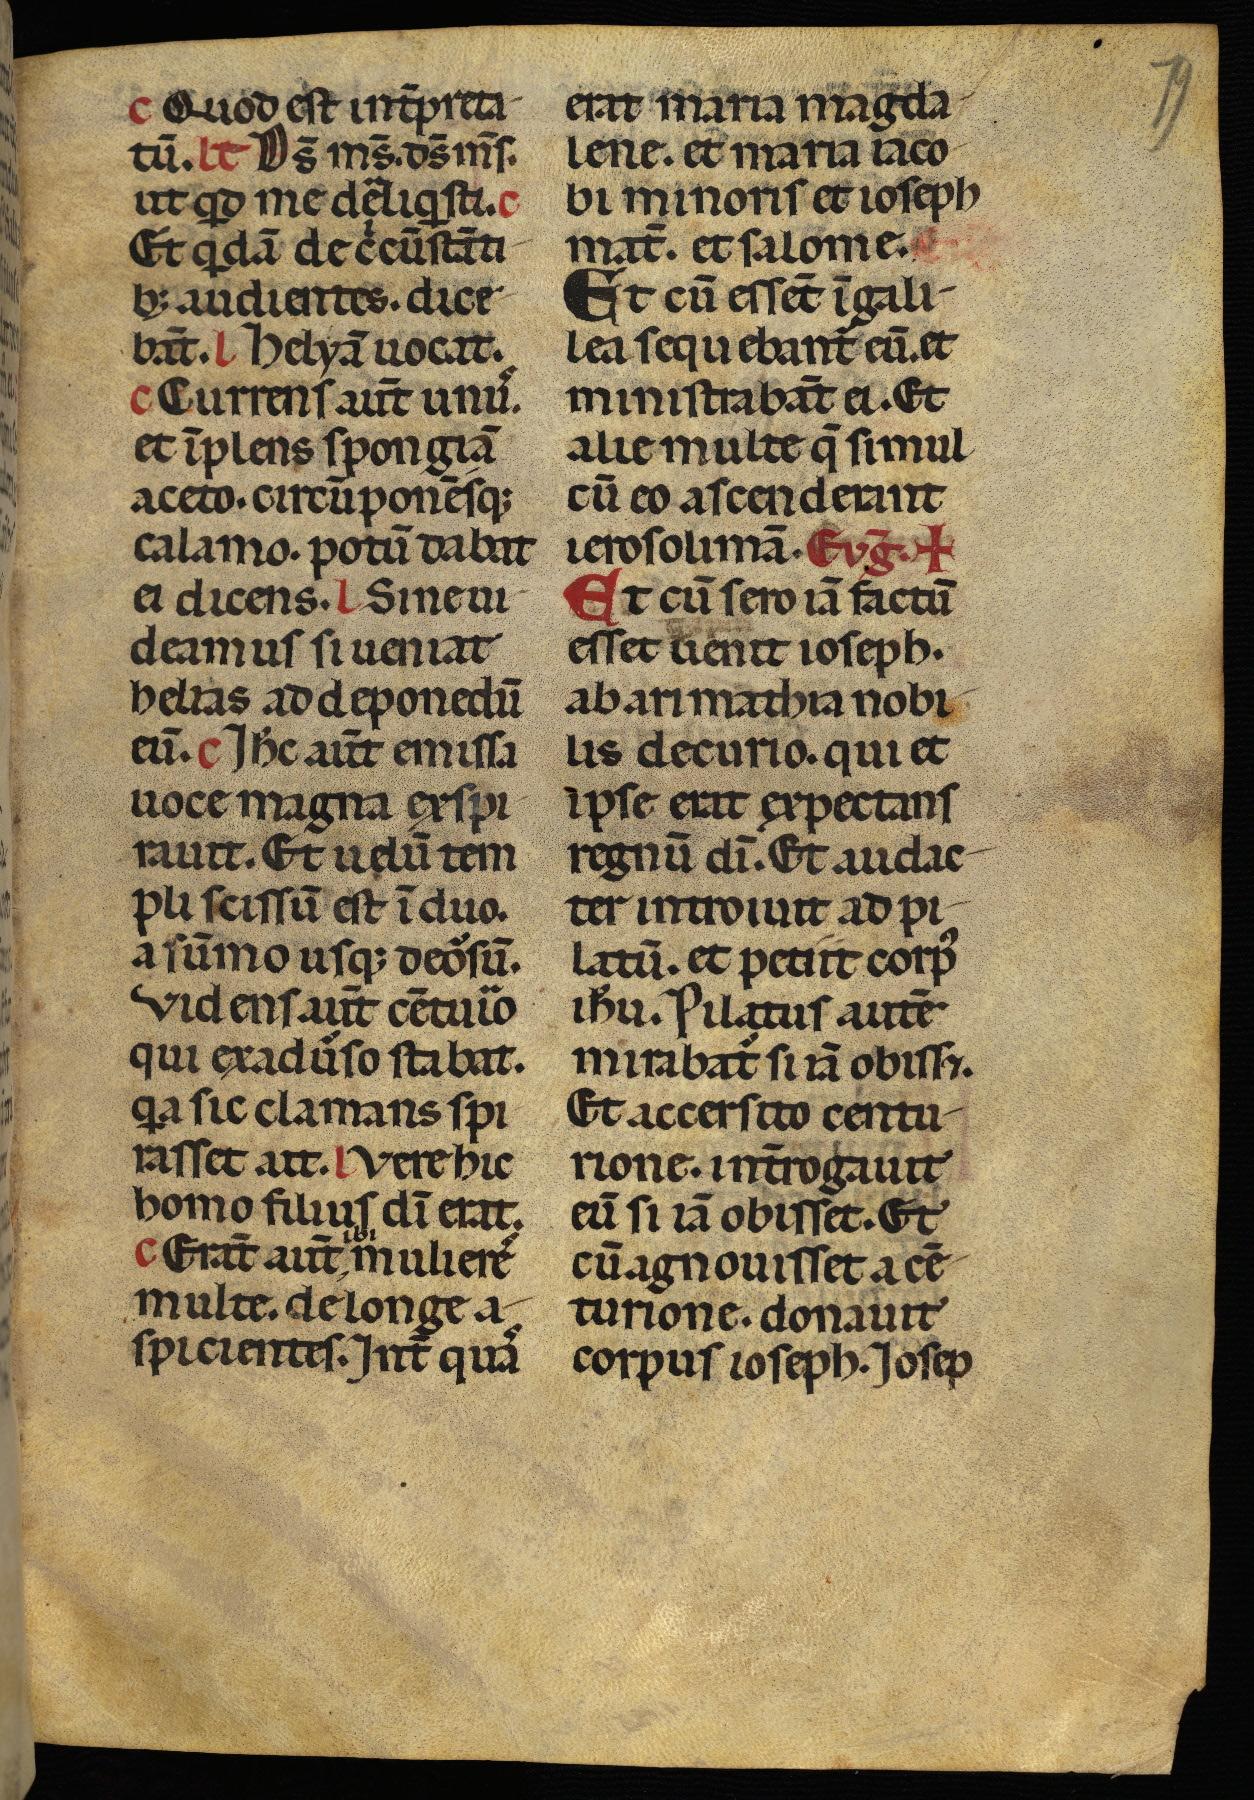 79
c Quod est int̄preta-
tū. lt Ds̄ ms̄. ds̄ ms̄.
ut qd me dēliqsti. c
Et qdā de ccūstāti-
b; audientes. dice-
bāt. l helyā uocat.
c Currens aūt unu.
et īplens spongiā
aceto. circūponēsq;
calamo. potū dabat
ei dicens. l Sine ui-
deamus si ueniat
helias ad deponedū
eū. c Ihc aūt emissa
uoce magna exspi-
rauit. Et uelū tem
pli scissū est ī duo.
a sūmo usq; deosū.
Videns aūt cētuio
qui exaduso stabat.
qa sic clamans spi-
rasset ait. l Vere hic
homo filius dī erat.
c Erāt aūt ibi muliere
multe. de longe a-
spicientes. Int̄ qua
erat maria magda-
lene. et maria iaco-
bi minoris et ioseph
mat̄. et salome.
Et cū essēt ī gali-
lea sequebant̄ eū. et
ministrabāt ei. Et
alie multe q̄ simul
cū eo ascenderant
ierosolimā. Evḡ. +
Et cū sero iā factū
esset uenit ioseph.
ab arimathia nobi-
lis decurio. qui et
ipse erat expectans
regnū dī. Et audac-
ter introiuit ad pi-
latū. et petiit corp9
ihu. Pilatus autē
mirabat̄ si iā obiss;.
Et accersito centu-
rione. int̄rogauit
eū si iā obisset. Et
cū agnouisset a cē-
turione. donauit
corpus ioseph. Iosep